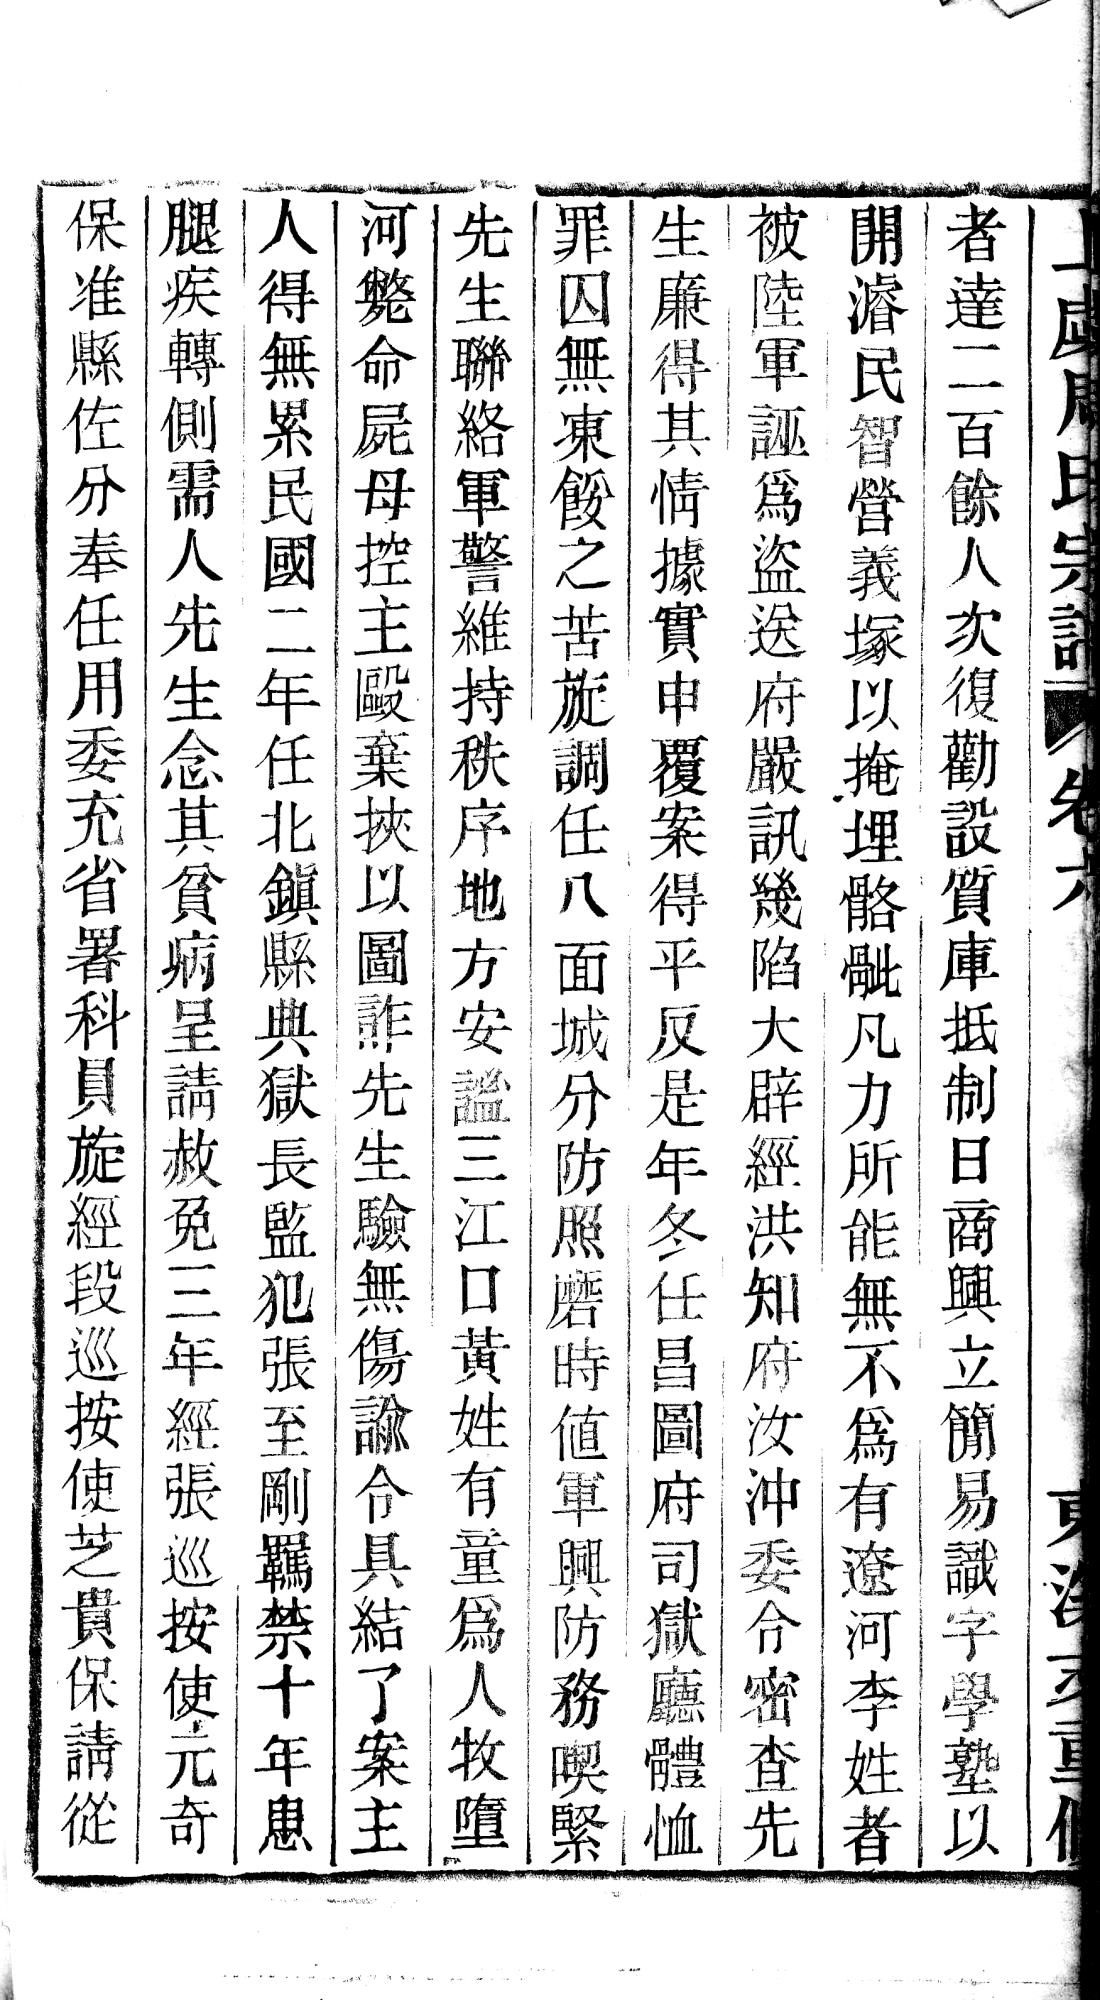 氏宗譜 卷六
重修
者達二百餘人次復勸設質庫抵制日商興立簡易識字學塾以
開濬民智營義塚以掩埋骼骴凡力所能無不爲有遼河李姓者
被陸軍誣爲盜送府嚴訊幾陷大辟經洪知府汝沖委令密查先
生廉得其情據實申覆案得平反是年冬任昌圖府司獄廳體恤
罪囚無凍餒之苦旋調任八面城分防照磨時值軍興防務喫緊
先生聯絡軍警維持秩序地方安謐三江口黃姓有童爲人牧墮
河斃命屍母控主毆棄挾以圖詐先生驗無傷諭令具結了案主
人得無累民國二年任北鎮縣典獄長監犯張至剛羈禁十年患
腿疾轉側需人先生念其貧病呈請赦免三年經張巡按使元奇
保准縣佐分奉任用委充省署科員旋經段巡按使芝貴保請從